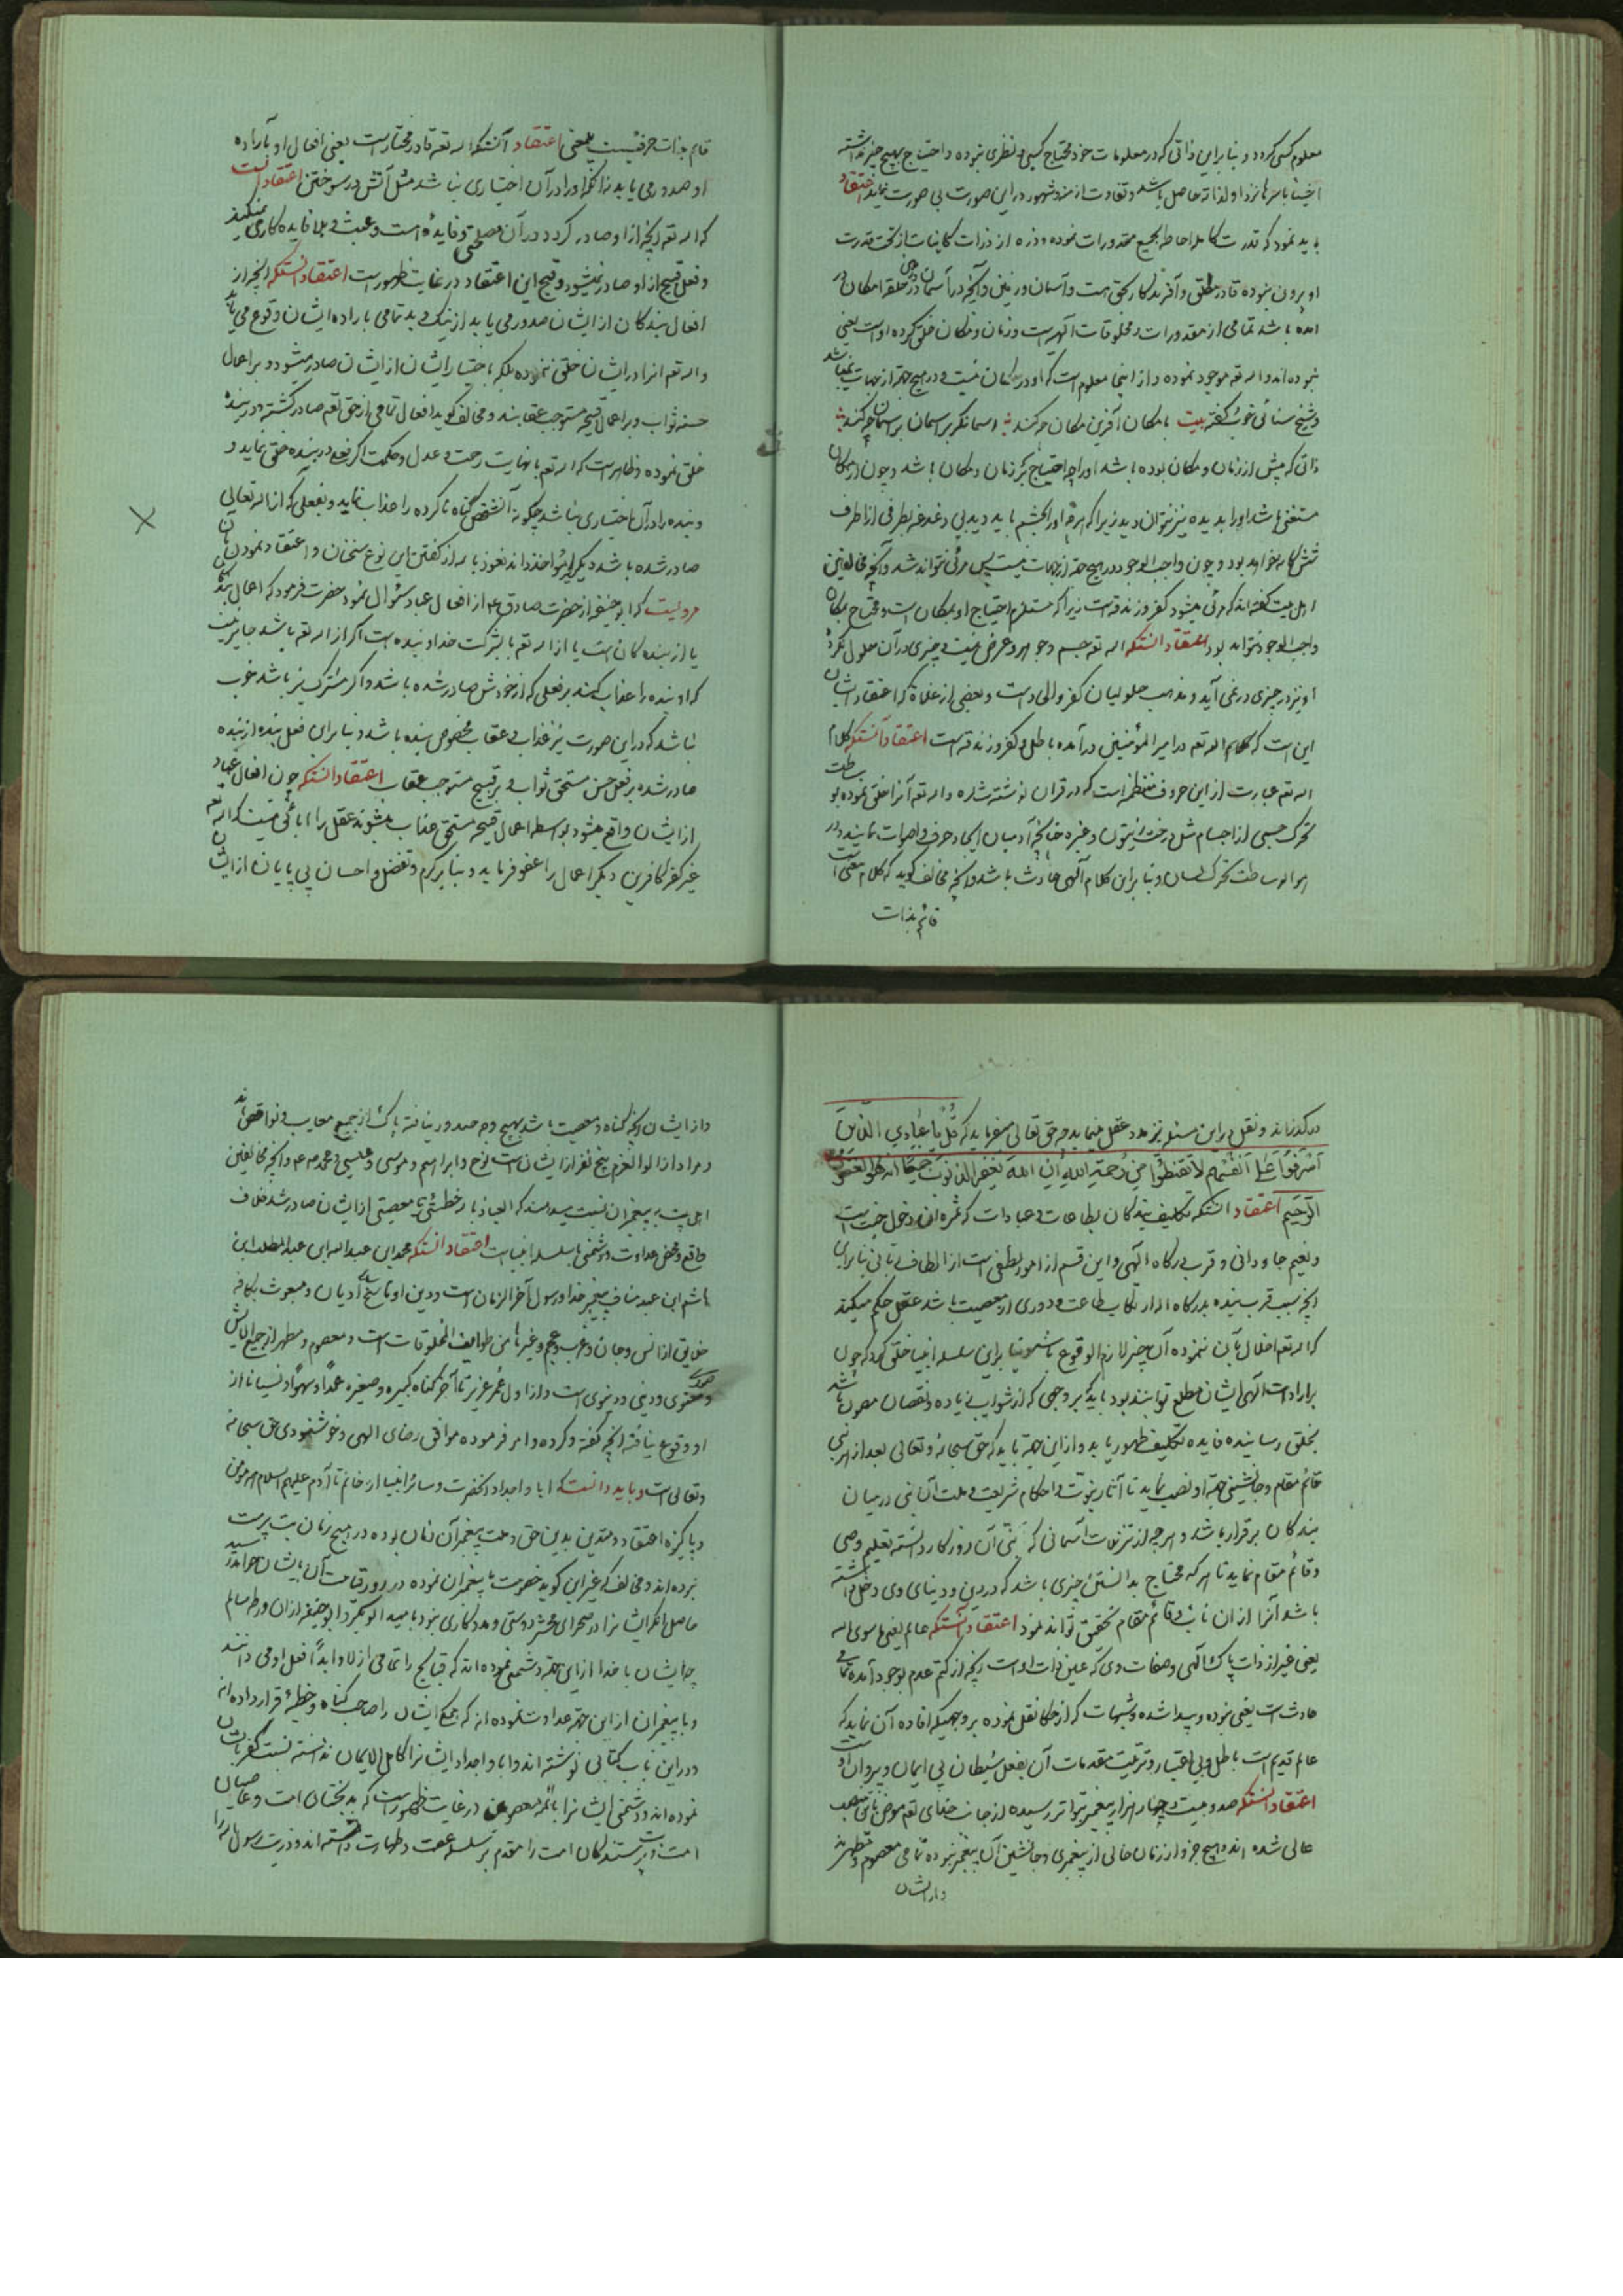 معلوم کسی کردد و بنا براین ذاتی که در معلومات خود محتاج کسبی و نظری نبوده و احتیاج بهیچ چیز نداشته
اشیا باسرها نزد او لذاته حاصل باشد و تفاوت از منه و شهور در این صورت بی صورت نماید اعتقاد
باید نمود که قدرت کامله احاطه بجمیع مقدورات نموده و ذره از ذرات کاینات از تحت قدرت
او برون نبوده قادر مطلق و آفریدکار بحق هست و آسمان و زمین و آنچه در آسمان و در حلقه امکان در
امده باشد تمامی از مقدورات و مخلوقات آلهیست و زمان و مکان خلق کرده اوست یعنی
نبوده اند و اله تعه موجود نموده و از اینجا معلوم است که او در مکان نیست و در هیچ جهة از جهات نمیباشد
و شیخ سنائی خوش کفته بیت با مکان آفرین مکان چه کند آسمانکر بر آسمان چه کند
ذاتی که پیش از زمان و مکان بوده باشد اورا چه احتیاج بکر زمان و مکان باشد و چون از مکان
مستغنی باشد اورا بدیده نیز نتوان دید زیرا که هرچه اورا بچشم باید دید بی دغدغه بطرفی از اطراف
شش کانه خواهد بود و چون واجب الوجود در هیچ جهة از جهات نیست پس مرئی نتواند شد و آنچه مخالفین
اهل بیت کفته اند که مرئی میشود کفر و زندقه است زیرا که مستلزم احتیاج او بمکان است و محتاج بمکان
واجب الوجود نتواند بود اعتقاد انستکه اله تعه جسم و جوهر و عرض نیست و چیزی در آن حلول نکرده
او نیز در چیزی در نمی آید و مذهب حلولیان کفر والحاد است و بعضی از غلاة که اعتقاد ایشان
این است که اله تعه در امیر المؤمنین در آمده باطل و کفر و زندقه است اعتقاد آنستکه کلام
اله تعه عبارت از این حروف منتظمه است که در قران نوشته شده و اله تعه آنرا خلق نموده بوساطت
تحرک جسمی از اجسام مثل درخت زیتون و غیره چنانچه آدمیان ایجاد حرف و اصوات نمایند در
هوا بوساطت تحرک لسان و بنا براین کلام آلهی حادث باشد و آنچه مخالف کوید که کلام معنی است
قائم بذات
قایم بذات حرفیست بیمعنی اعتقاد آنستکه اله تعه قادر مختار است یعنی افعال او باراده
او صدور می یابد نه آنکه اورا در آن اختیاری نباشد مثل آتش در سوختن اعتقاد انست
که اله تعه آنچه از او صادر کردد در آن مصلحتی و فایده است و عبث و بلا فایده کار نمیکند
و فعل قبیح از او صادر نمیشود و قبح این اعتقاد در غایت ظهور است اعتقاد انستکه آنچه از
افعال بندکان از ایشان صدور می یابد از نیک و بد تمامی باراده ایشان وقوع می یابد
و اله تعه انرا در ایشان خلق ننموده بلکه باختیار ایشان از ایشان صادر میشود و بر اعمال
حسنه ثواب و بر اعمال قبیحه مستوجب عقابند و مخالف کوید افعال تمامی از حق تعه صادر کشته و در بنده
خلق نموده و ظاهر است که اله تعه با نهایت رحمت و عدل و حکمت اکر فعلی در بنده خلق نماید و
و بنده را در آن اختیاری نباشد چکونه آنشخص کناه ناکرده را عذاب نماید و بفعلی که از اله تعالی
صادر شده باشد دیکریرا مؤاخذ داند نعوذ باله از کفتن این نوع سخنان و اعتقاد نمودن بآن
مرویست که ابو حنیفه از حضرت صادق ع از افعال عباد سئوال نمود حضرت فرمود که اعمال بندکان
یا از بنده کان است یا از اله تعه یا بشرکت خدا و بنده است اکر از اله تعه باشد جایز نیست
که او بنده را عذاب کند بر فعلی که از خودش صادر شده باشد و اکر مشترک نیز باشد خوب
نباشد که در این صورت نیز عذاب و عقاب مخصوص بنده باشد و بنا براین فعل بنده از بنده
صادر شده بر فعل حسن مستحق ثواب و بر قبیح مستوجب عقاب اعتقاد انستکه چون افعال عباد
از ایشان واقع میشود بواسطه اعمال قبیحه مستحق عذاب میشوند عقل را ابائی نیست که اله تعه
غیر کفر کافرین دیکر اعمال را عفو فرماید و بنا بر کرم و تفضل و احسان بی پایان از ایشان
در کذراند و نقل بر این مسئله نیز مدد عقل مینماید چه حق تعالی میفرماید که قُل یا عِبادِي الَّذینَ
أَسْرَفُوا عَلی أَنْفُسِهِم لا تَقْنَطُوا مِنْ رَحْمَةِ اللهِ اِن اللهَ یَغفِرُ الذُنوبَ جَمیعًا انه هُو الغَفُورُ
الرَّحیم اعتقاد انستکه تکلیف بندکان بطاعات و عبادات که ثمره آن دخول جنت است
و نعیم جاودانی و قرب درکاه آلهی و این قسم از امور لطفی است از الطاف ربانی بنا براین
آنچه سبب قرب بنده بدرکاه اله از ارتکاب طاعت و دوری از معصیت باشد عقل حکم میکند
که اله تعه اخلال بآن ننموده آن چیز لازم الوقوع باشد و بنا براین سلسله انبیا خلق کرد که چون
بر ارادت آلهی ایشان مطلع توانند بود باید که بر وجهی که از شوایب زیاده و نقصان مصون باشد
بخلق رسانیده فایده تکلیف ظهور یابد و از این جهة باید که حق سبحانه و تعالی بعد از هر نبی
قائم مقام و جانشینی جهة او نصب نماید تا آثار نبوّت و احکام شریعت و ملت آن نبی در میان
بندکان برقرار باشد و هر چه از تنزیلات آسمانی که نبی آن روزکار دانسته تعلیم وصی
و قائم مقام نماید تا هر که محتاج بدانستن چیزی باشد که در دین و دنیای وی دخل داشته
باشد آنرا از ان نایب و قائم مقام تحقیق تواند نمود اعتقاد انستکه عالم یعنی ما سوی اله
یعنی غیر از ذات پاک آلهی و صفات وی که عین ذات اوست آنچه از کتم عدم بوجود آمده تمامی
حادث است یعنی نبوده و پیدا شده و شبهات که از حکما نقل نموده بر وجهیکه افاده آن نماید که
عالم قدیم است باطل و بی اعتبار و ترتیب مقدمات آن بفعل شیطان بی ایمان و پیروان اوست
اعتقاد انستکه صد و بیست و چهار هزار پیغمبر بتواتر رسیده از جانب خدای تعه مفوض باین منصب
عالی شده اند و هیچ جزو از زمان خالی از پیغمبری و جانشین آن پیغمبر نبوده تمامی معصوم و مطهرند
و از ایشان
و از ایشان آنچه کناه و معصیت باشد بهیچ وجه صدور نیافته پاک از جمیع معایب و نواقص اند
و مراد از الوالعزم پنج نفر از ایشان است نوح و ابراهیم و موسی و عیسی و محمد ص و آنچه مخالفین
اهل بیت به پیغمبران نسبت میدهند که العیاذ باله خطیئتی یا معصیتی از ایشان صادر شد خلاف
واقع و محض عداوت و دشمنی با سلسله انبیا است اعتقاد انستکه محمد ابن عبداله ابن عبد المطلب ابن
هاشم ابن عبد مناف پیغمبر خدا و رسول آخر الزمان است و دین او ناسخ ادیان و مبعوث بکافه
خلایق از انس و جان و عرب و عجم و غیرها من طوایف المخلوقات است و معصوم و مطهر از جمیع ادناس
صوری و معنوی و دینی و دنیوی است و از اول عمر عزیز تا آخر کناه کبیره و صغیره عمدًا و سهوًا و نسیانا از
او وقوع نیافته آنچه کفته و کرده و امر فرموده موافق رضای الهی و خوشنودی حق سبحانه
و تعالی است و باید دانست که ابا و اجداد آنحضرت و سائر انبیا از خاتم تا آدم علیهم السلام همه مؤمن
و پاکیزه اعتقاد و متدین بدین حق و ملت پیغمبر آن زمان بوده در هیچ زمان بت پرست
نبوده اند و مخالف که غیر این کوید خصومت با پیغمبران نموده در روز قیامت آن بایشان خواهد رسید
حاصل انکه ایشانرا در صحرای محشر دوستی و مددکاری نبود بامید ابوبکر و ابو حنیفه از ان ورطه سالم
چه ایشان با خدا از این جهة دشمنی نموده اند که قبایح را تمامی ازلا و ابدًا فعل او می دانند
و با پیغمبران از این جهة عداوت نموده اند که جمیع ایشان را صاحب کناه و خطیئه قرار داده اند
و در این باب کتابی نوشته اند و ابا و اجداد ایشانرا کامل الایمان ندانسته نسبت کفر بایشان
نموده اند و دشمنی ایشانرا با ائمه معصومین در غایت ظهور است که بدبختان امت و عاصیان
امت و بت پرستندکان امت را مقدم بر سلسله عصمت و طهارت دانسته اند و ذریت رسول اله را